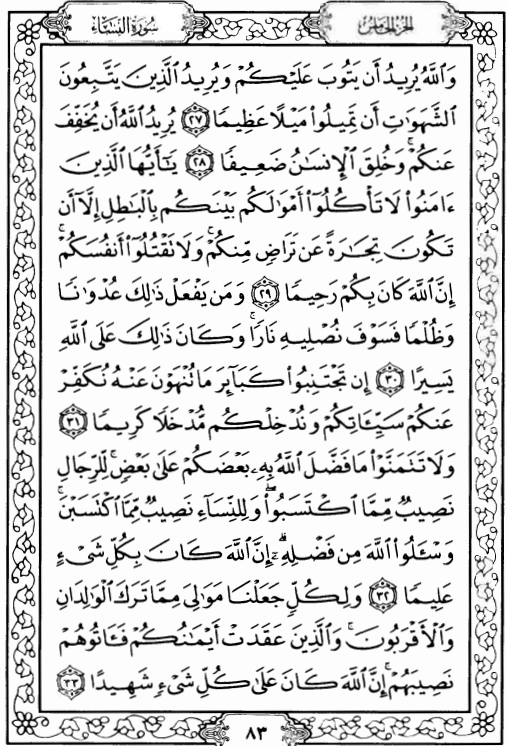 سُورَةُ النِّسَاءِ
الجزء الخامس
وَاللَّهُ يُرِيدُ أَن يَتُوبَ عَلَيْكُمْ وَيُرِيدُ الَّذِينَ يَتَّبِعُونَ
الشَّهَوَاتِ أَن تَمِيلُوا۟ مَيْلًا عَظِيمًا ٢٧ يُرِيدُ اللَّهُ أَن يُخَفِّفَ
عَنكُمْ ۚ وَخُلِقَ الْإِنسَـٰنُ ضَعِيفًا ٢٨ يَـٰٓأَيُّهَا الَّذِينَ
ءَامَنُوا۟ لَا تَأْكُلُوٓا۟ أَمْوَٰلَكُم بَيْنَكُم بِالْبَـٰطِلِ إِلَّآ أَن
تَكُونَ تِجَـٰرَةً عَن تَرَاضٍ مِّنكُمْ ۚ وَلَا تَقْتُلُوٓا۟ أَنفُسَكُمْ ۚ
إِنَّ اللَّهَ كَانَ بِكُمْ رَحِيمًا ٢٩ وَمَن يَفْعَلْ ذَٰلِكَ عُدْوَٰنًا
وَظُلْمًا فَسَوْفَ نُصْلِيهِ نَارًا ۚ وَكَانَ ذَٰلِكَ عَلَى اللَّهِ
يَسِيرًا ٣٠ إِن تَجْتَنِبُوا۟ كَبَآئِرَ مَا تُنْهَوْنَ عَنْهُ نُكَفِّرْ
عَنكُمْ سَيِّـَٔاتِكُمْ وَنُدْخِلْكُم مُّدْخَلًا كَرِيمًا ٣١
وَلَا تَتَمَنَّوْا۟ مَا فَضَّلَ اللَّهُ بِهِۦ بَعْضَكُمْ عَلَىٰ بَعْضٍ ۚ لِّلرِّجَالِ
نَصِيبٌ مِّمَّا اكْتَسَبُوا۟ ۖ وَلِلنِّسَآءِ نَصِيبٌ مِّمَّا اكْتَسَبْنَ ۚ
وَسْـَٔلُوا۟ اللَّهَ مِن فَضْلِهِۦٓ ۗ إِنَّ اللَّهَ كَانَ بِكُلِّ شَىْءٍ
عَلِيمًا ٣٢ وَلِكُلٍّ جَعَلْنَا مَوَٰلِىَ مِمَّا تَرَكَ الْوَٰلِدَانِ
وَالْأَقْرَبُونَ ۚ وَالَّذِينَ عَقَدَتْ أَيْمَـٰنُكُمْ فَـَٔاتُوهُمْ
نَصِيبَهُمْ ۚ إِنَّ اللَّهَ كَانَ عَلَىٰ كُلِّ شَىْءٍ شَهِيدًا ٣٣
٨٣